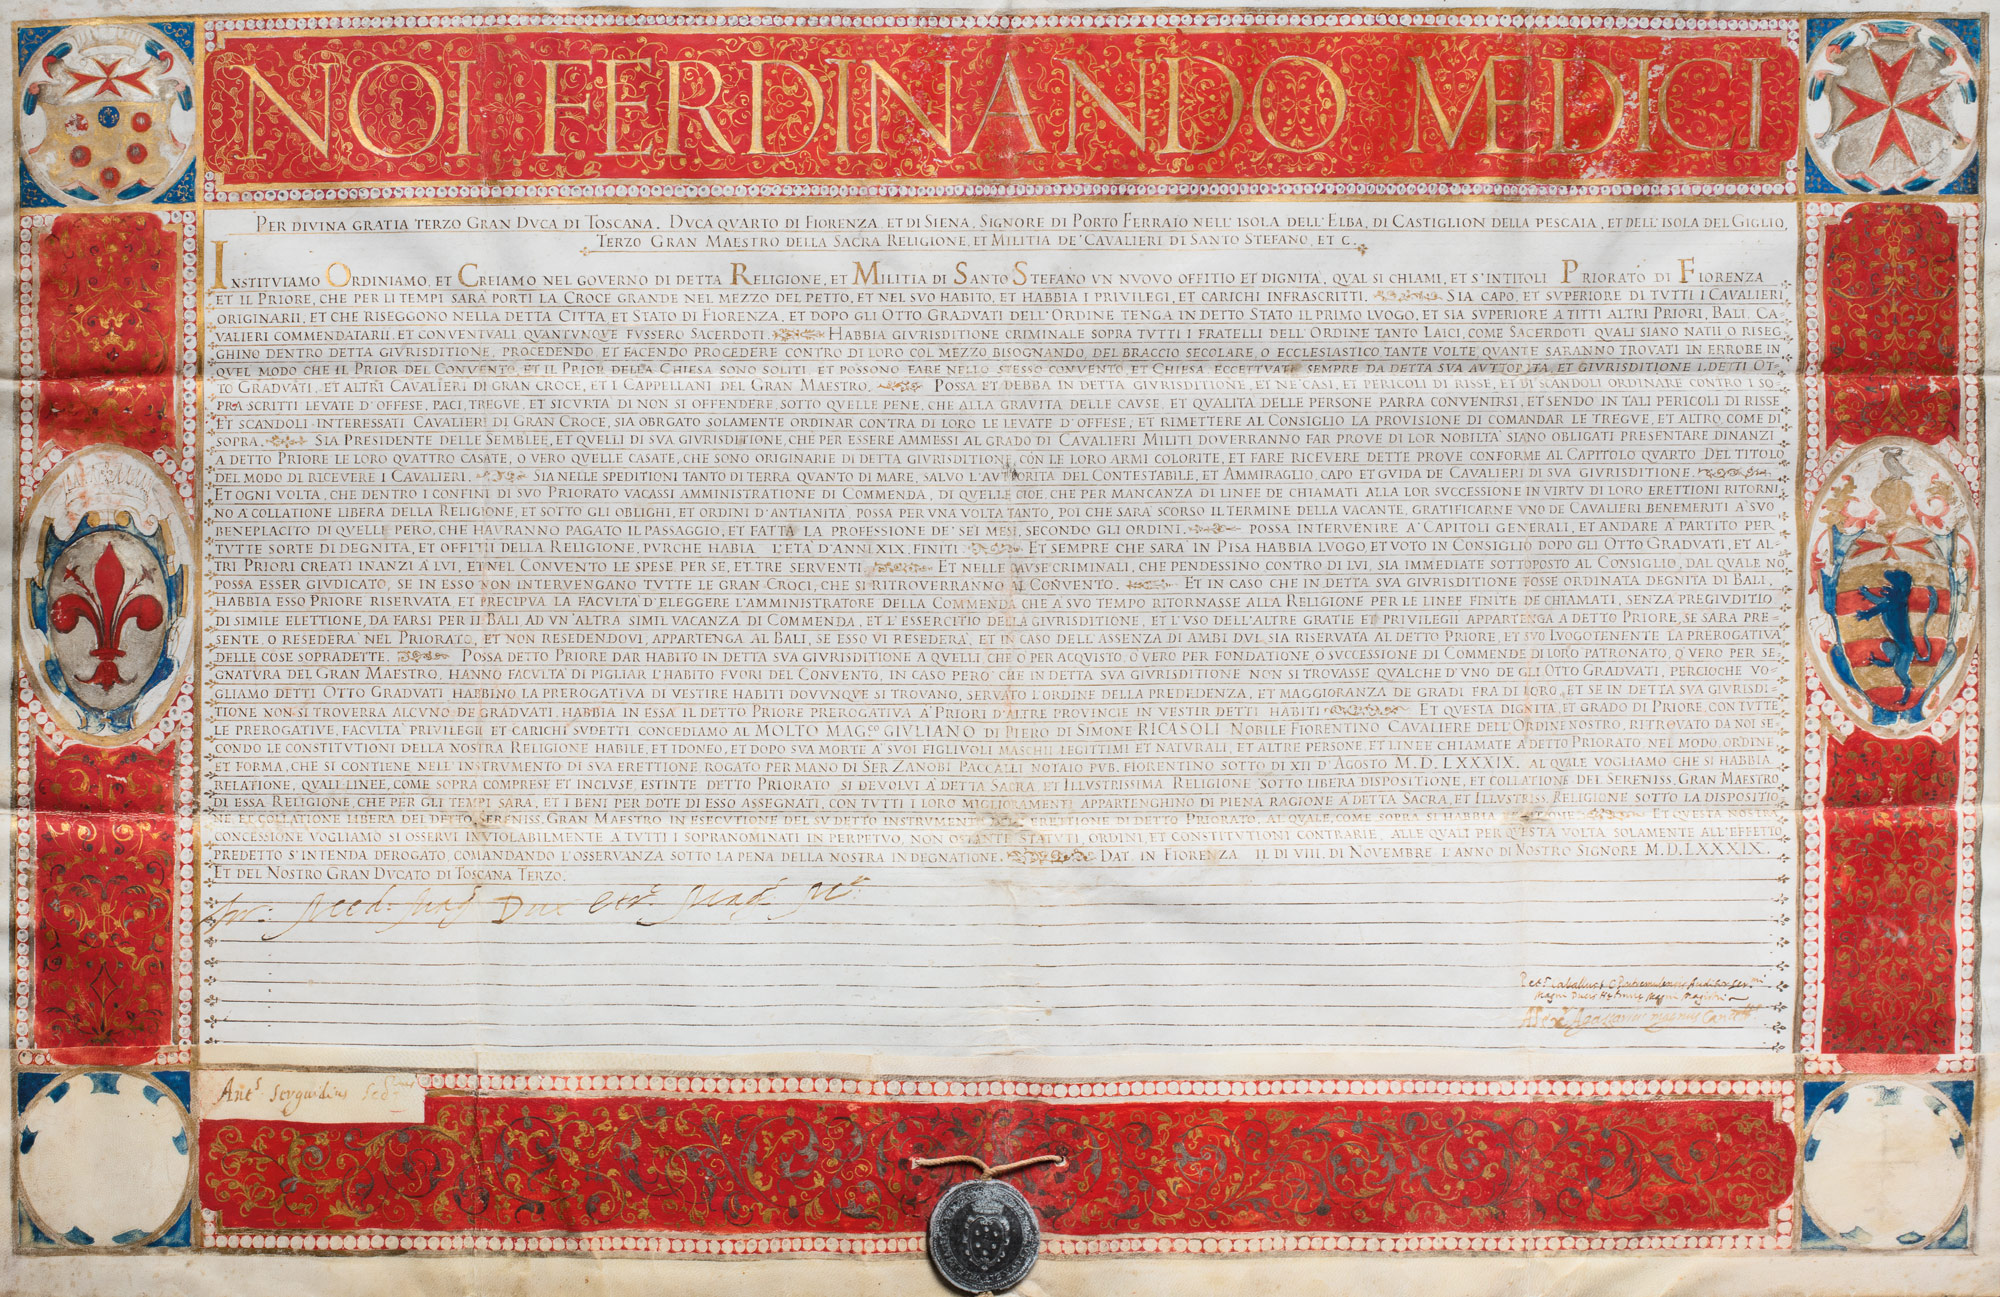 NOI FERDINANDO MEDICI
PER DIVINA GRATIA TERZO GRAN DVCA DI TOSCANA. DVCA QVARTO DI FIORENZA ET DI SIENA, SIGNORE DI PORTO FERRAIO NELL'ISOLA DELL'ELBA, DI CASTIGLION DELLA PESCAIA, ET DELL'ISOLA DEL GIGLIO,
TERZO GRAN MAESTRO DELLA SACRA RELIGIONE, ET MILITIA DE' CAVALIERI DI SANTO STEFANO, ET C.
INSTITVIAMO ORDINIAMO, ET CREIAMO NEL GOVERNO DI DETTA RELIGIONE, ET MILITIA DI SANTO STEFANO VN NVOVO OFFITIO ET DIGNITA, QVAL SI CHIAMI, ET S'INTITOLI PRIORATO DI FIORENZA
ET IL PRIORE, CHE PER LI TEMPI SARA PORTI LA CROCE GRANDE NEL MEZZO DEL PETTO, ET NEL SVO HABITO, ET HABBIA I PRIVILEGI, ET CARICHI INFRASCRITTI. SIA CAPO, ET SVPERIORE DI TVTTI I CAVALIERI
ORIGINARII, ET CHE RISEGGONO NELLA DETTA CITTA ET STATO DI FIORENZA, ET DOPO GLI OTTO GRADVATI DELL'ORDINE TENGA IN DETTO STATO IL PRIMO LVOGO, ET SIA SVPERIORE A TITTI ALTRI PRIORI, BALI, CA-
VALIERI COMMENDATARII, ET CONVENTVALI QVANTVNQVE FVSSERO SACERDOTI. HABBIA GIVRISDITIONE CRIMINALE SOPRA TVTTI I FRATELLI DELL'ORDINE TANTO LAICI, COME SACERDOTI QVALI SIANO NATII O RISEG-
GHINO DENTRO DETTA GIVRISDITIONE, PROCEDENDO ET FACENDO PROCEDERE CONTRO DI LORO COL MEZZO BISOGNANDO, DEL BRACCIO SECOLARE, O ECCLESIASTICO TANTE VOLTE, QVANTE SARANNO TROVATI IN ERRORE IN
QVEL MODO CHE IL PRIOR DEL CONVENTO, ET IL PRIOR DELLA CHIESA SONO SOLITI ET POSSONO FARE NELLO STESSO CONVENTO, ET CHIESA ECCETTVATI SEMPRE DA DETTA SVA AVTTORITA, ET GIVRISDITIONE I DETTI OT-
TO GRADVATI, ET ALTRI CAVALIERI DI GRAN CROCE, ET I CAPPELLANI DEL GRAN MAESTRO. POSSA ET DEBBA IN DETTA GIVRISDITIONE, ET NE' CASI, ET PERICOLI DI RISSE, ET DI SCANDOLI ORDINARE CONTRO I SO-
PRA SCRITTI LEVATE D'OFFESE, PACI, TREGVE, ET SICVRTA DI NON SI OFFENDERE, SOTTO QVELLE PENE, CHE ALLA GRAVITA DELLE CAVSE, ET QVALITA DELLE PERSONE PARRA CONVENIRSI, ET SENDO IN TALI PERICOLI DI RISSE
ET SCANDOLI INTERESSATI CAVALIERI DI GRAN CROCE, SIA OBRGATO SOLAMENTE ORDINAR CONTRA DI LORO LE LEVATE D'OFFESE, ET RIMETTERE AL CONSIGLIO LA PROVISIONE DI COMANDAR LE TREGVE, ET ALTRO COME DI
SOPRA. SIA PRESIDENTE DELLE SEMBLEE, ET QVELLI DI SVA GIVRISDITIONE, CHE PER ESSERE AMMESSI AL GRADO DI CAVALIERI MILITI DOVERRANNO FAR PROVE DI LOR NOBILTA SIANO OBLIGATI PRESENTARE DINANZI
A DETTO PRIORE LE LORO QVATTRO CASATE, O VERO QVELLE CASATE, CHE SONO ORIGINARIE DI DETTA GIVRISDITIONE CON LE LORO ARMI COLORITE, ET FARE RICEVERE DETTE PROVE CONFORME AL CAPITOLO QVARTO DEL TITOLO
DEL MODO DI RICEVERE I CAVALIERI. SIA NELLE SPEDITIONI TANTO DI TERRA QVANTO DI MARE, SALVO L'AVTORITA DEL CONTESTABILE, ET AMMIRAGLIO, CAPO ET GVIDA DE CAVALIERI DI SVA GIVRISDITIONE.
ET OGNI VOLTA, CHE DENTRO I CONFINI DI SVO PRIORATO VACASSI AMMINISTRATIONE DI COMMENDA, DI QVELLE CIOE, CHE PER MANCANZA DI LINEE DE CHIAMATI ALLA LOR SVCCESSIONE IN VIRTV DI LORO ERETTIONI RITORNI-
NO A COLLATIONE LIBERA DELLA RELIGIONE, ET SOTTO GLI OBLIGHI, ET ORDINI D'ANTIANITA, POSSA PER VNA VOLTA TANTO, POI CHE SARA SCORSO IL TERMINE DELLA VACANTE, GRATIFICARNE VNO DE CAVALIERI BENEMERITI A SVO
BENEPLACITO DI QVELLE PERO, CHE HAVRANNO PAGATO IL PASSAGGIO, ET FATTA LA PROFESSIONE DE' SEI MESI, SECONDO GLI ORDINI. POSSA INTERVENIRE A CAPITOLI GENERALI, ET ANDARE A PARTITO PER
TVTTE SORTE DI DEGNITA, ET OFFITII DELLA RELIGIONE, PVRCHE HABIA L'ETA D'ANNI XIX. FINITI ET SEMPRE CHE SARA IN PISA HABBIA LVOGO, ET VOTO IN CONSIGLIO DOPO GLI OTTO GRADVATI, ET AL-
TRI PRIORI CREATI INANZI A LVI, ET NEL CONVENTO LE SPESE PER SE, ET TRE SERVENTI. ET NELLE CAVSE CRIMINALI, CHE PENDESSINO CONTRO DI LVI, SIA IMMEDIATE SOTTOPOSTO AL CONSIGLIO, DAL QVALE NO
POSSA ESSER GIVDICATO, SE IN ESSO NON INTERVENGANO TVTTE LE GRAN CROCI, CHE SI RITROVERRANNO AL CONVENTO. ET IN CASO CHE IN DETTA SVA GIVRISDITIONE FOSSE ORDINATA DEGNITA DI BALI,
HABBIA ESSO PRIORE RISERVATA ET PRECIPVA LA FACVLTA D'ELEGGERE L'AMMINISTRATORE DELLA COMMENDA CHE A SVO TEMPO RITORNASSE ALLA RELIGIONE PER LE LINEE FINITE DE CHIAMATI, SENZA PREGIVDITIO
DI SIMILE ELETTIONE, DA FARSI PER IL BALI, AD VN'ALTRA SIMIL VACANZA DI COMMENDA, ET L'ESSERCITIO DELLA GIVRISDITIONE, ET L'VSO DELL'ALTRE GRATIE ET PRIVILEGII APPARTENGA A DETTO PRIORE, SE SARA PRE-
SENTE, O RESEDERA NEL PRIORATO, ET NON RESEDENDOVI, APPARTENGA AL BALI, SE ESSO VI RESEDERA, ET IN CASO DELL'ASSENZA DI AMBI DVI, SIA RISERVATA AL DETTO PRIORE, ET SVO LVOGOTENENTE LA PREROGATIVA
DELLE COSE SOPRADETTE. POSSA DETTO PRIORE DAR HABITO IN DETTA SVA GIVRISDITIONE A QVELLI, CHE O PER ACQVISTO, O VERO PER FONDATIONE, O SVCCESSIONE DI COMMENDE DI LORO PATRONATO, O VERO PER SE-
GNATVRA DEL GRAN MAESTRO, HANNO FACVLTA DI PIGLIAR L'HABITO FVORI DEL CONVENTO, IN CASO PERO CHE IN DETTA SVA GIVRISDITIONE NON SI TROVASSE QVALCHE D'VNO DE GLI OTTO GRADVATI, PERCIOCHE VO-
GLIAMO DETTI OTTO GRADVATI HABBINO LA PREROGATIVA DI VESTIRE HABITI DOVVNQVE SI TROVANO, SERVATO L'ORDINE DELLA PREDEDENZA, ET MAGGIORANZA DE GRADI FRA DI LORO, ET SE IN DETTA SVA GIVRISDI-
TIONE NON SI TROVERRA ALCVNO DE GRADVATI, HABBIA IN ESSA IL DETTO PRIORE PREROGATIVA A PRIORI D'ALTRE PROVINCIE IN VESTIR DETTI HABITI ET QVESTA DIGNITA, ET GRADO DI PRIORE, CON TVTTE
LE PREROGATIVE, FACVLTA PRIVILEGII ET CARICHI SVDETTI CONCEDIAMO AL MOLTO MAG.CO GIVLIANO DI PIERO DI SIMONE RICASOLI NOBILE FIORENTINO CAVALIERE DELL'ORDINE NOSTRO, RITROVATO DA NOI SE-
CONDO LE CONSTITVTIONI DELLA NOSTRA RELIGIONE HABILE, ET IDONEO, ET DOPO SVA MORTE A SVOI FIGLIVOLI MASCHII LEGITTIMI ET NATVRALI, ET ALTRE PERSONE, ET LINEE CHIAMATE A DETTO PRIORATO NEL MODO, ORDINE
ET FORMA, CHE SI CONTIENE NELL'INSTRVMENTO DI SVA ERETTIONE ROGATO PER MANO DI SER ZANOBI PACCALLI NOTAIO PVB. FIORENTINO SOTTO DI XII D'AGOSTO M.D.LXXXIX. AL QVALE VOGLIAMO CHE SI HABBIA
RELATIONE, QVALI LINEE, COME SOPRA COMPRESE ET INCLVSE, ESTINTE DETTO PRIORATO SI DEVOLVI A DETTA SACRA ET ILLVSTRISSIMA RELIGIONE SOTTO LIBERA DISPOSITIONE, ET COLLATIONE DEL SERENISS. GRAN MAESTRO
DI ESSA RELIGIONE, CHE PER GLI TEMPI SARA, ET I BENI PER DOTE DI ESSO ASSEGNATI, CON TVTTI I LORO MIGLIORAMENTI APPARTENGHINO DI PIENA RAGIONE A DETTA SACRA, ET ILLVSTRISS. RELIGIONE SOTTO LA DISPOSITIO-
NE ET COLLATIONE LIBERA DEL DETTO SERENISS. GRAN MAESTRO IN ESECVTIONE DEL SVDETTO INSTRVMENTO DELL'ERETTIONE DI DETTO PRIORATO, AL QVALE, COME SOPRA SI HABBIA RELATIONE ET QVESTA NOSTRA
CONCESSIONE VOGLIAMO SI OSSERVI INVIOLABILMENTE A TVTTI I SOPRANOMINATI IN PERPETVO, NON OSTANTE STATVTI, ORDINI, ET CONSTITVTIONI CONTRARIE, ALLE QVALI PER QVESTA VOLTA SOLAMENTE ALL'EFFETTO
PREDETTO S'INTENDA DEROGATO, COMANDANDO L'OSSERVANZA SOTTO LA PENA DELLA NOSTRA INDEGNATIONE. DAT. IN FIORENZA IL DI VIII. DI NOVEMBRE L'ANNO DI NOSTRO SIGNORE M.D.LXXXIX.
ET DEL NOSTRO GRAN DVCATO DI TOSCANA TERZO.
Dux
Ant.s Serguidius